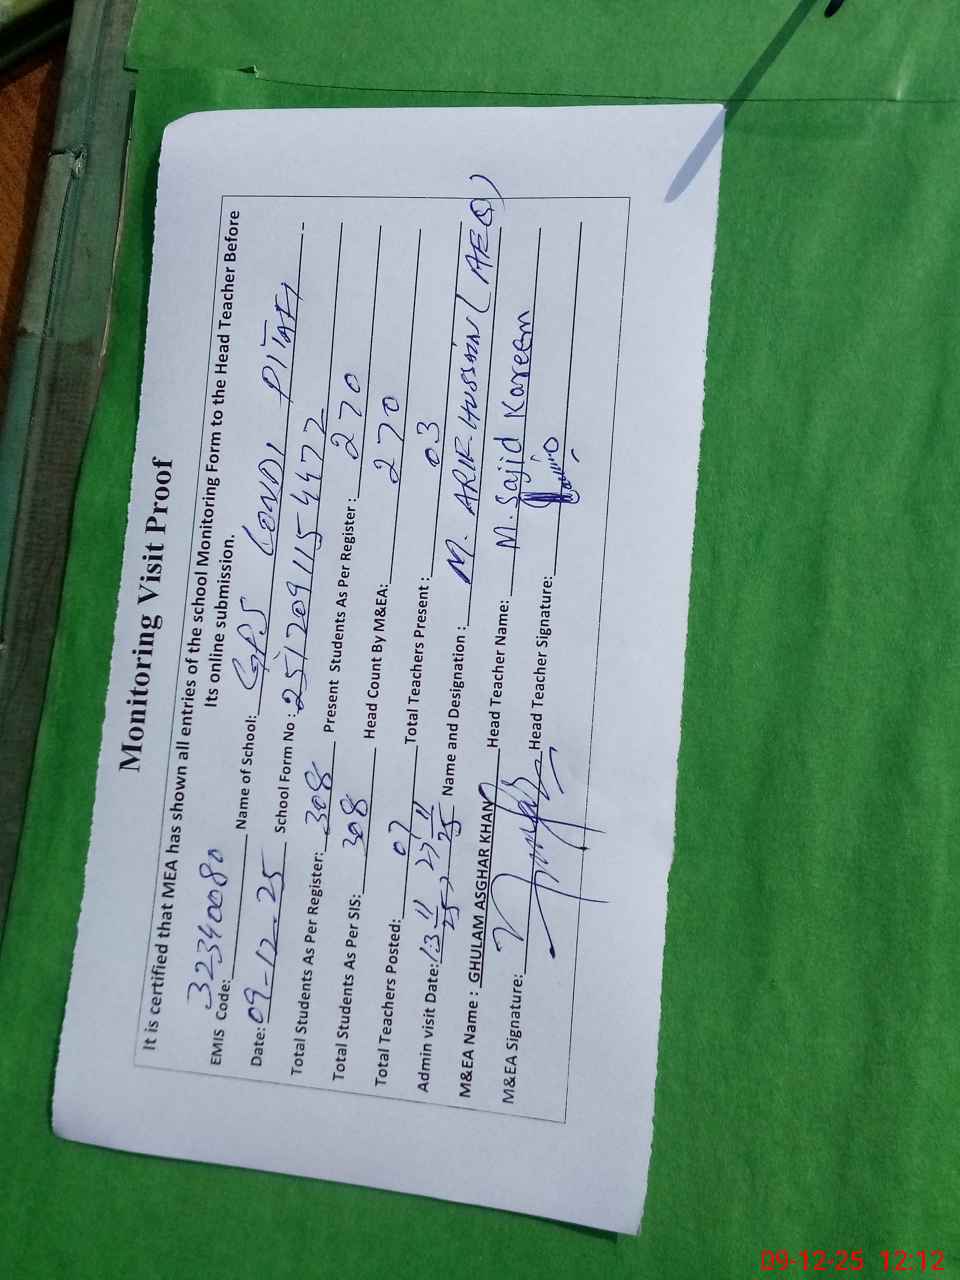 Monitoring Visit Proof
It is certified that MEA has shown all entries of the school Monitoring Form to the Head Teacher Before
Its online submission.
EMIS Code: 32340080 Name of School: GPS LONDI PITAFI
Date: 09-12-25 School Form No: 2512091154477
Total Students As Per Register: 308 Present Students As Per Register: 270
Total Students As Per SIS: 308 Head Count By M&EA: 270
Total Teachers Posted: 07 Total Teachers Present: 03
Admin visit Date: 13-11-25, 27-11-25 Name and Designation: M. ARIF HUSSAIN (AEO)
M&EA Name: GHULAM ASGHAR KHAN Head Teacher Name: M. Sajid Kareem
M&EA Signature: Head Teacher Signature:
09-12-25 12:12